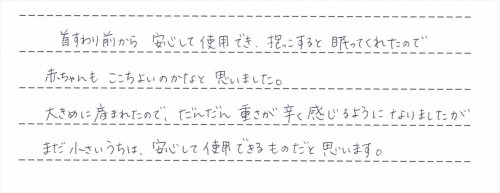 首すわり前から 安心して使用でき、抱っこすると 眠ってくれたので
赤ちゃんも ここちよいのかなと 思いました。
大きめに産まれたので、だんだん 重さが辛く感じるように なりましたが
まだ小さいうちは、安心して使用できるものだと思います。